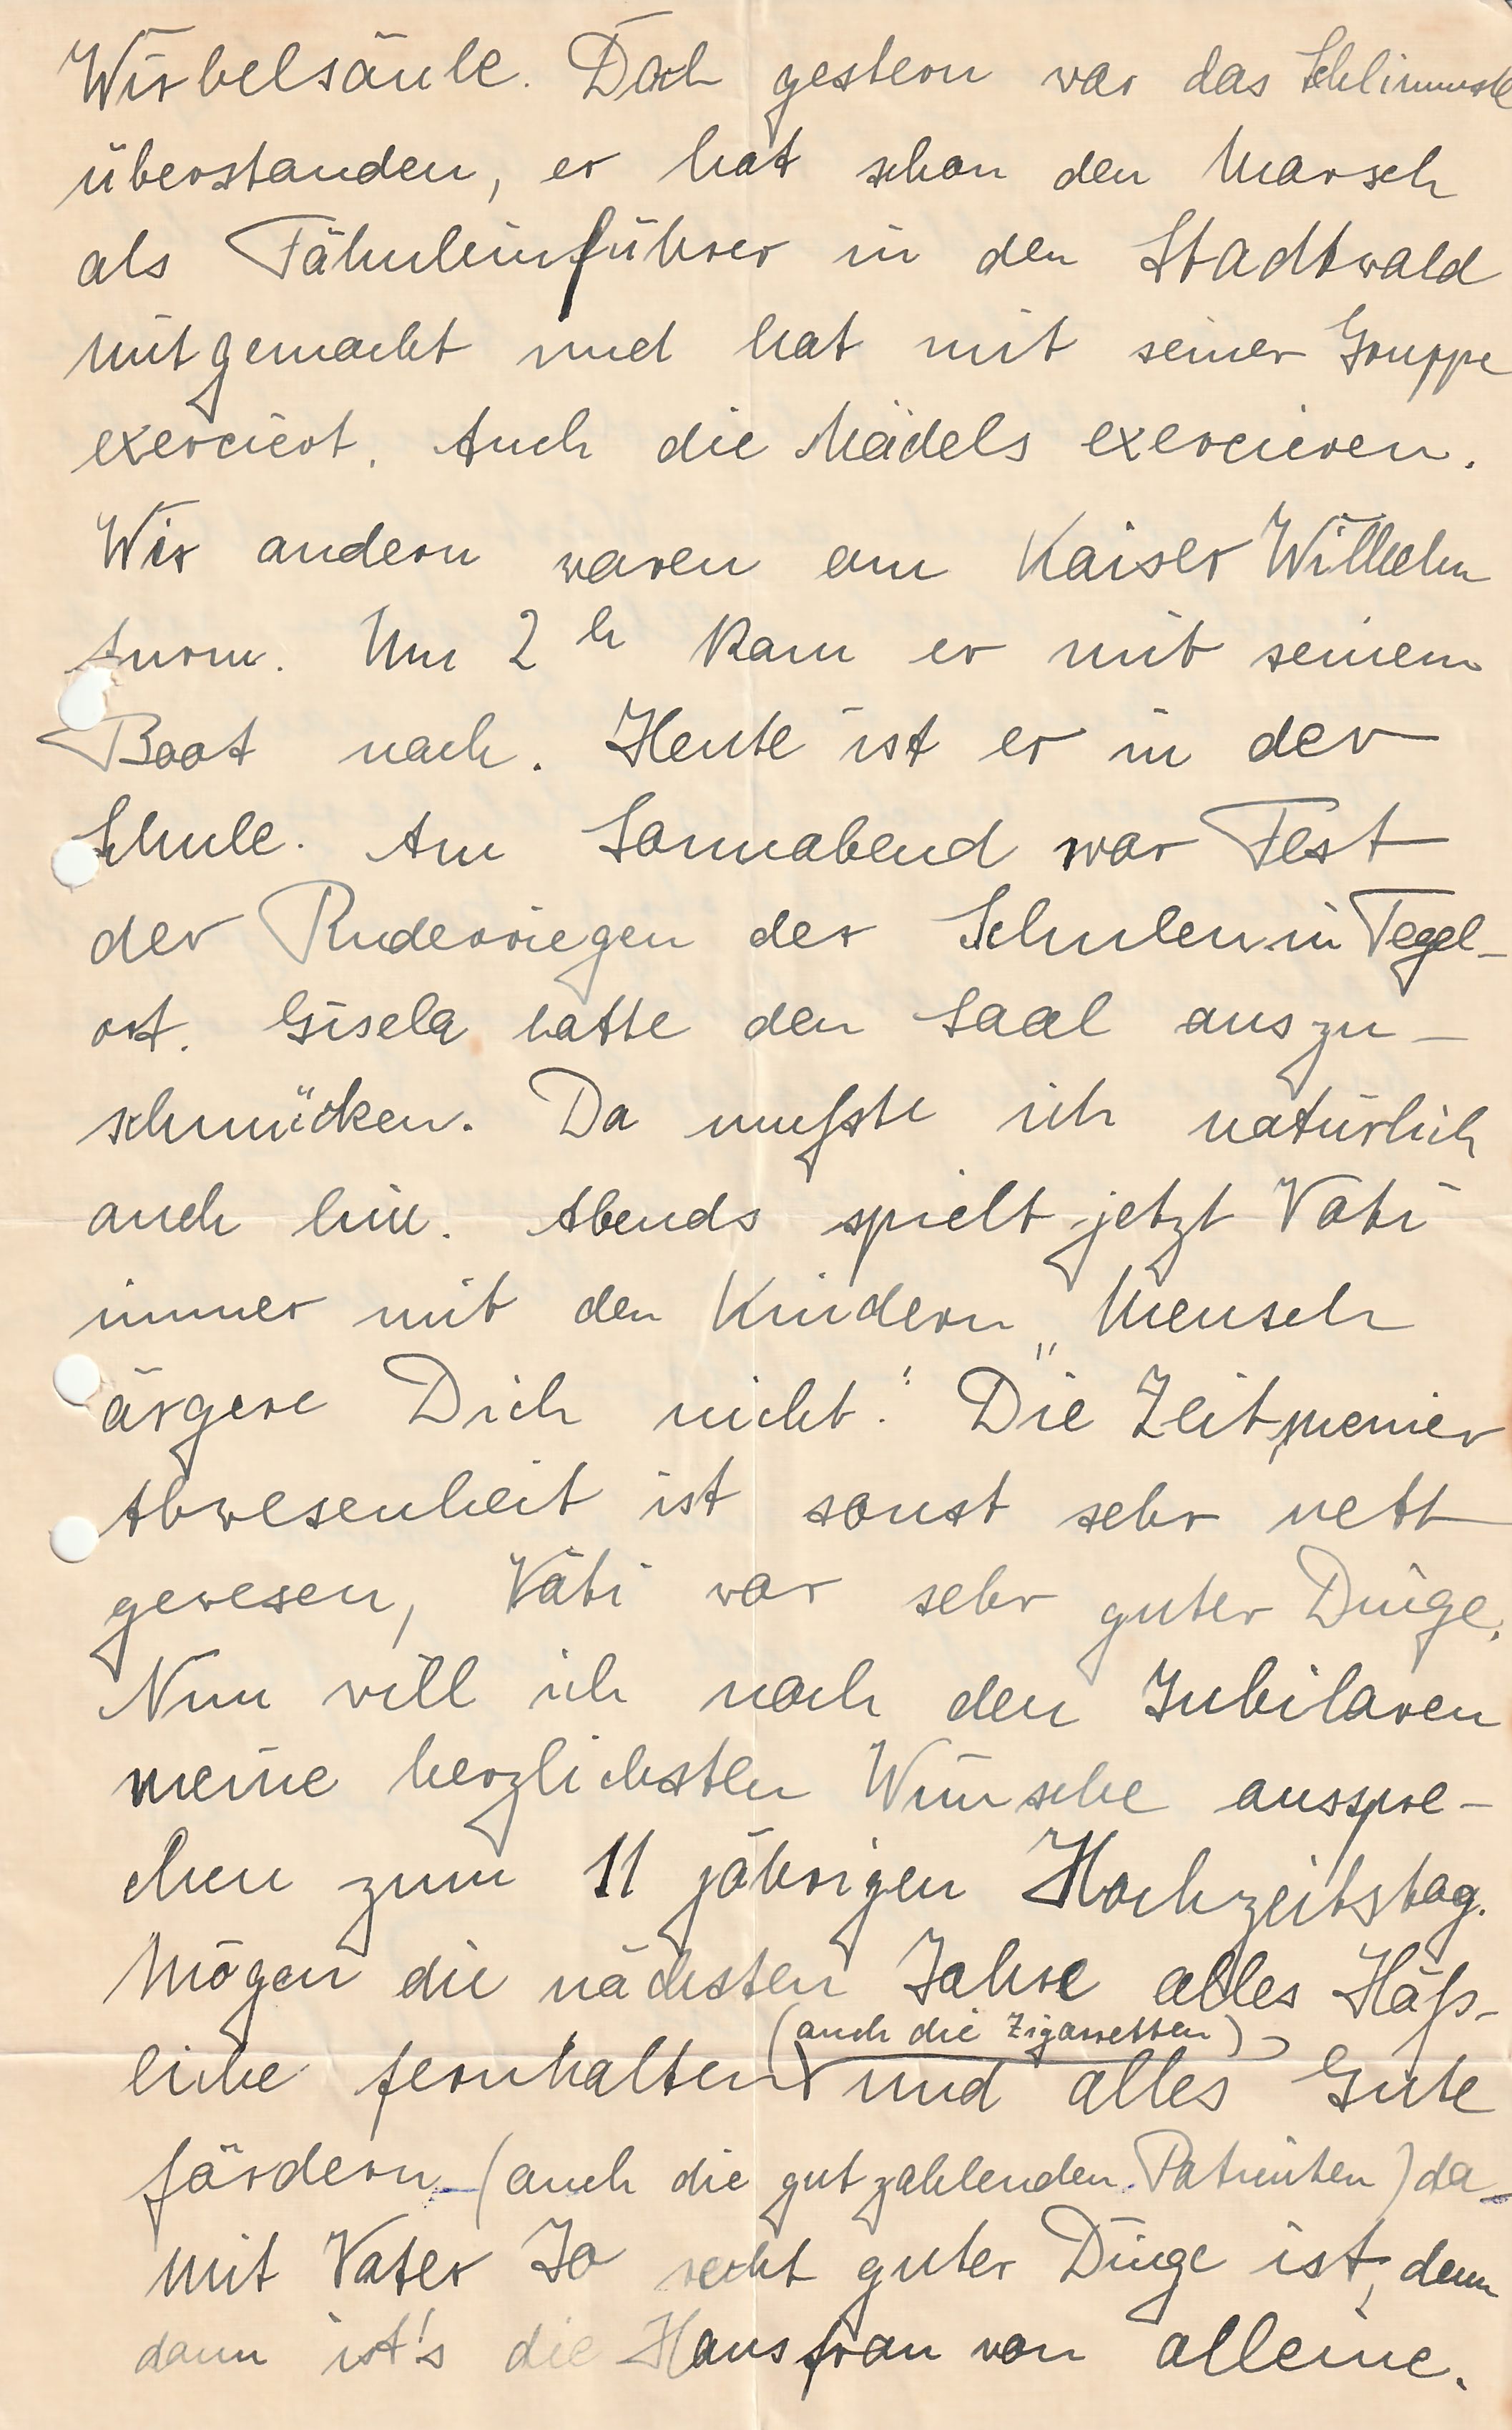 Wirbelsäule. Doch gestern war das Schlimmste
überstanden, er hat schon den Marsch
als Fähnleinführer in den Stadtwald
mitgemacht und hat mit seiner Gruppe
exerciert. Auch die Mädels exercieren.
Wir andern waren am Kaiser Wilhelm
turm. Um 2 h kam er mit seinem
Boot nach. Heute ist er in der
Schule. Am Sonnabend war Fest
der Ruderriegen der Schulen in Tegel-
ort. Gisela hatte den Saal auszu-
schmücken. Da mußte ich natürlich
auch hin. Abends spielt jetzt Vati
immer mit den Kindern „Mensch
ärgere Dich nicht". Die Zeit meiner
Abwesenheit ist sonst sehr nett
gewesen, Vati war sehr guter Dinge.
Nun will ich noch den Jubilaren
meine herzlichsten Wünsche ausspre-
chen zum 11 jährigen Hochzeitstag.
Mögen die nächsten Jahre alles Häß-
(auch die Zigarretten)
liche fernhalten und alles Gute
fördern (auch die gut zahlenden Patienten) da-
mit Vater Jo recht guter Dinge ist, denn
dann ist's die Hausfrau von alleine.